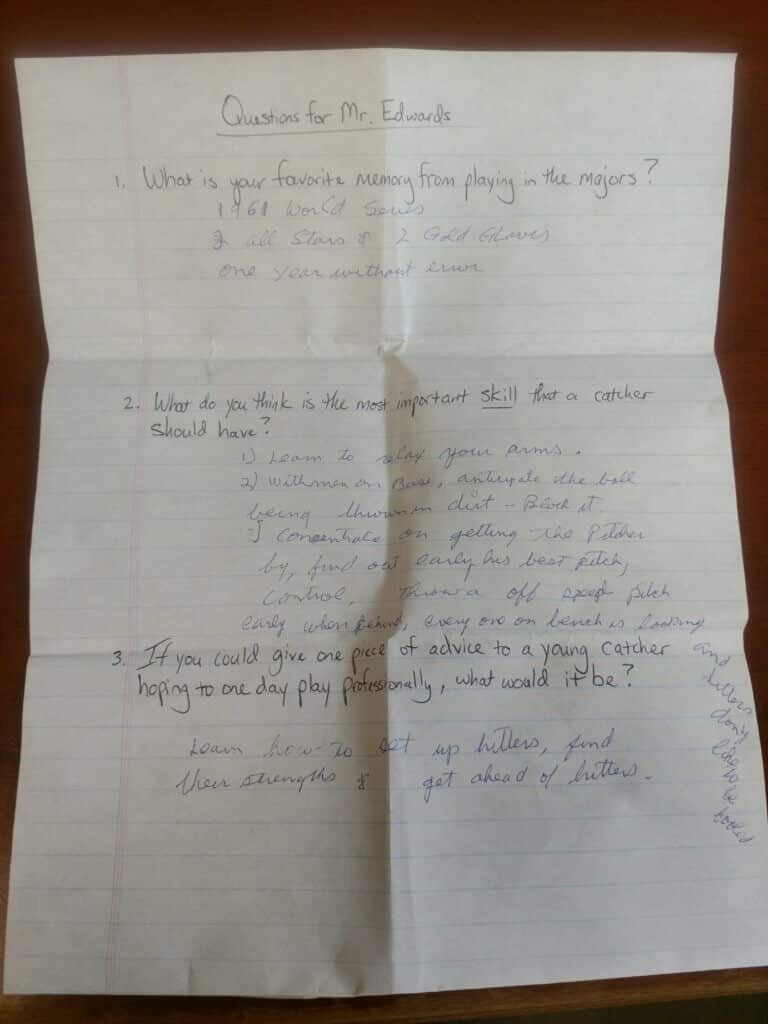 Questions for Mr. Edwards
1. What is your favorite memory from playing in the majors?
1961 World Series
all Stars & 2 Gold Gloves
one year without error
2. What do you think is the most important skill that a catcher
should have?
1) Learn to relax your arms.
2) With men on Base, anticipate the ball
being thrown in dirt - Block it.
Concentrate on getting the Pitcher
by, find out early his best pitch,
control. Throw a off speed pitch
early when behind, every one on bench is looking
and hitters don't like to be fooled
3. If you could give one piece of advice to a young catcher
hoping to one day play professionally, what would it be?
Learn how to set up hitters, find
their strengths & get ahead of hitters.